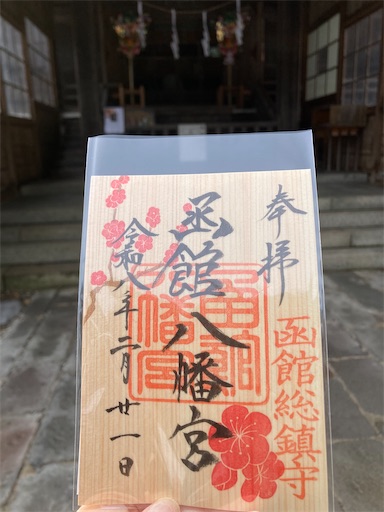 奉拝
函館総鎮守
函館八幡宮
令和八年二月廿一日
函館八幡宮